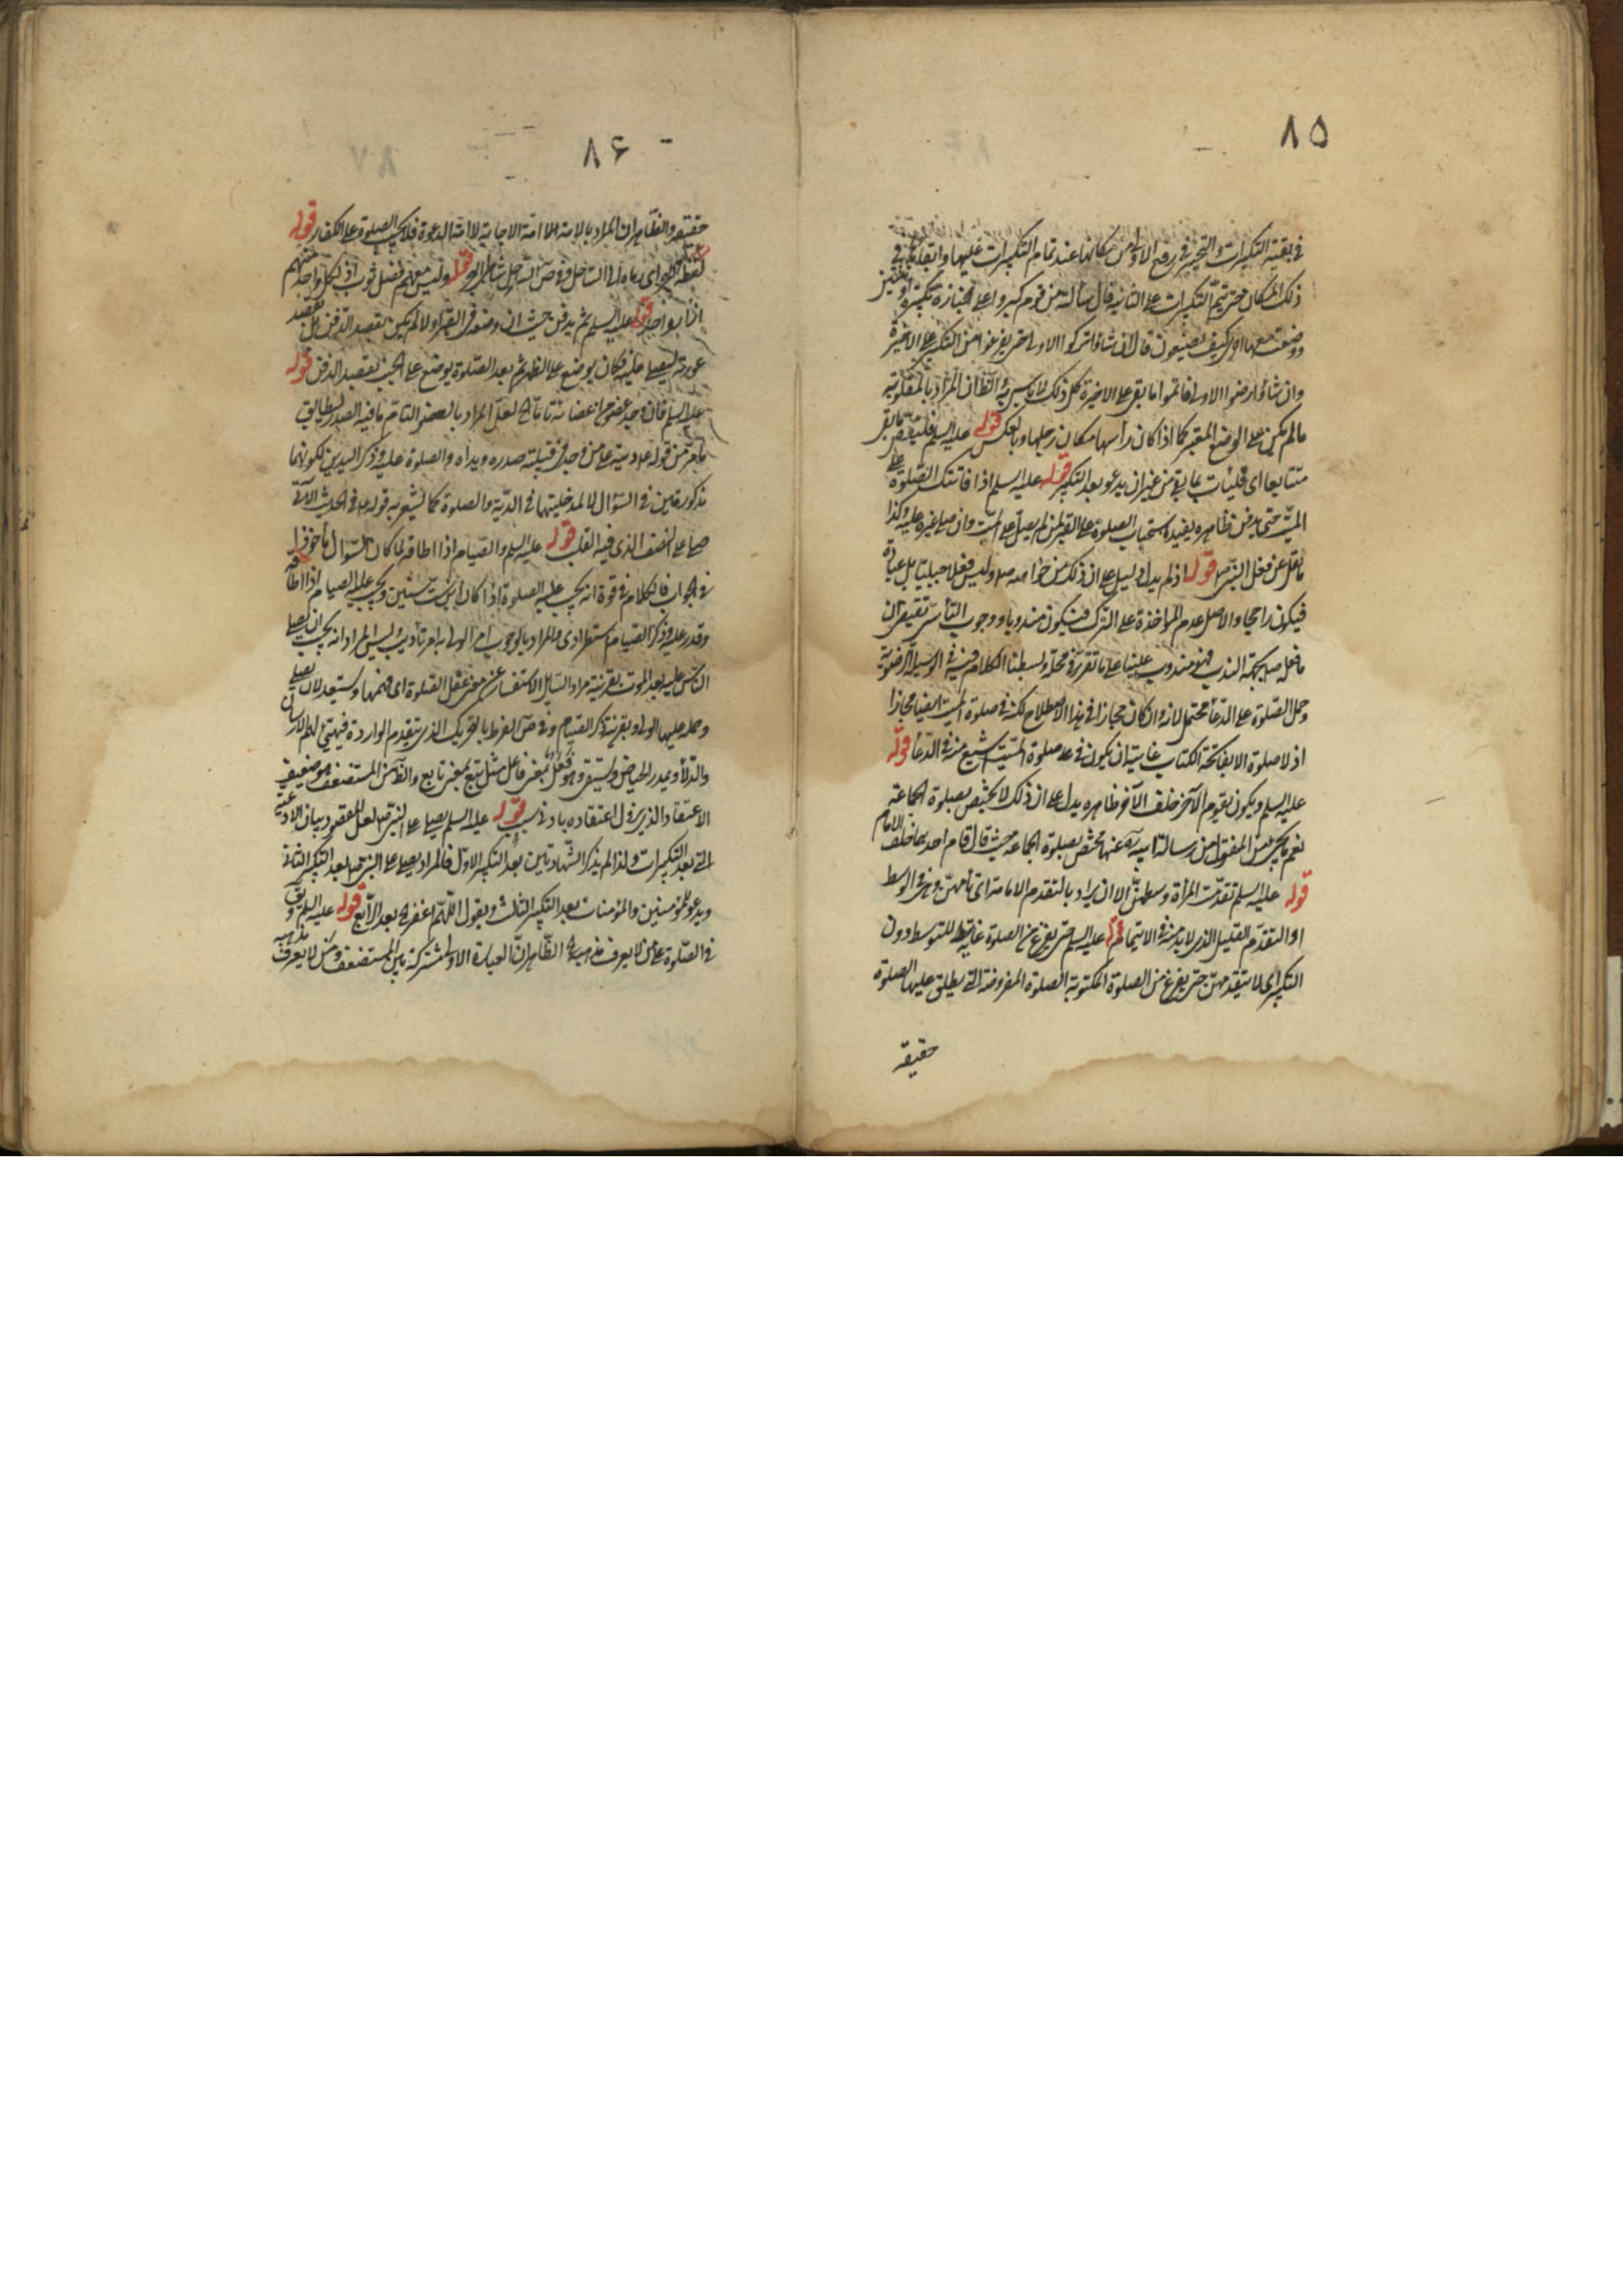 ٨٥
فى بقية التكبيرات والتخيير فى رفع الاولى من مكانها عند تمام التكبيرات عليها وابقائها فى
ذلك المكان حتى يتم التكبيرات على الثانية قال سألته عن قوم كبروا على جنازة تكبيرة او ثنتين
ووضعت معها اخرى كيف يصنعون قال ان شاؤا تركوا الاولى حتى يفرغوا من التكبير على الاخيرة
وان شاؤا رفعوا الاولى فاتموا ما بقى على الاخيرة كل ذلك لا باس به الظ ان المراد بالمقلوبة
ما لم يكن على الوضع المعتبر كما اذا كان رأسها مكان رجليها وبالعكس قوله عليه السلم فليقض ما بقى
متتابعا اى فليأت بما بقى من غير ان يدعو بعد التكبير قوله عليه السلم اذا فاتتك الصلوة على
الميت حتى يدفن ظاهره يفيد استحباب الصلوة على القبر لمن لم يصل على الميت وان صلى غيره عليه وكذا
ما نقل عن فعل النبى ص قوله اذ لم يدل دليل على ان ذلك من خواصه ص وليس فعلا جبليا بل عبادة
فيكون راجحا والاصل عدم المؤاخذة على الترك فيكون مندوبا ووجوب التأسى تقيض ان
ما فعله ص بجهة الندب فهو مندوب علينا على ما تقرر فى محله وبسطنا الكلام فيه فى الوسيلة الرضوية
وحمل الصلوة على الدعاء محتمل لانه وان كان مجازا فى هذا الاصطلاح لكنه فى صلوة الميت ايضا مجازا
اذ لا صلوة الا بفاتحة الكتاب غايته ان يكون فى عد صلوة الميت اشيع منه فى الدعاء قوله
عليه السلم ويكون يقوم الآخر خلف الآخر ظاهره يدل على ان ذلك لا يختص بصلوة الجماعة
نعم ما يجئ من المنقول من رسالة ابيه ره عنها مختص بصلوة الجماعة حيث قال قام احدهما خلف الامام
قوله عليه السلم تقدمت المرأة وسطهن الا ان يراد بالتقدم الامامة اى تأمهن وهى فى الوسط
او التقدم القليل الذى لا بد منه فى الايتمام قوله عليه السلم حتى يفرغ من الصلوة غاية للتوسط دون
التكبير اى لا يتقدمهن حتى يفرغ من الصلوة المكتوبة الصلوة المفروضة التى يطلق عليها الصلوة
حقيقة
٨۶
حقيقة والظاهر ان المراد بالامة هنا امة الاجابة لا امة الدعوة فلا يجب الصلوة على الكفار قوله
لفظ البحر اى رماه الى الساحل وفى ص الساحل شاطئ البحر قوله وليس معهم فضل ثوب اذ لكل واحد منهم
اذا بواحد قوله عليه السلم ثم يدفن حيث انه وضعه فى القبر اولا لم يكن بقصد الدفن بل بقصد
عورته ليصلى عليه فكان يوضع على الظهر ثم بعد الصلوة يوضع على الجنب بقصد الدفن قوله
عليه السلم فان وجد عضو من اعضائه تاما الخ لعل المراد بالعضو التام ما فيه الصدر ليطابق
ما مر من قوله ع وديته على من وجد فى قبيلته صدره ويداه والصلوة عليه وذكر اليدين لكونهما
مذكورتين فى السؤال لا لمدخليتهما فى الدية والصلوة كما يشعر به قوله ع فى الحديث الآتى
صلى على النصف الذى فيه القلب قوله عليه السلم والصيام اذا اطاقه لما كان السؤال مأخوذا
فى الجواب فالكلام فى قوة انه يجب عليه الصلوة اذا كان ابن ست سنين ويجب عليه الصيام اذا اطاقه
وقدر عليه وذكر الصيام استطرادى والمراد بالوجوب امر الولى به امر تأديب وليس المراد انه يجب ان يصلى
الناس عليه بعد الموت بقرينة مراد السائل الاستفسار عنه معنى عقل الصلوة اى فهمها واستعد لان يصلى
وحمله عليها الولى وبقرينة ذكر الصيام وفى ص الفرط بالتحريك الذى يتقدم الواردة فيهئ لهم الارسان
والدلاء ويمدر الحياض ويستقى وهو فعل بمعنى فاعل مثل تبع بمعنى تابع والظ من المستضعف هو ضعيف
الاعتقاد الذى يزول اعتقاده بادنى سبب قوله عليه السلم يصلى على النبى ص لعل المقصود بيان الادعية
التى بعد التكبيرات ولذا لم يذكر الشهادتين بعد التكبير الاول فالمراد يصلى على النبى ص بعد التكبير الثانى
ويدعو للمؤمنين والمؤمنات بعد التكبير الثالث ويقول اللهم اغفر الخ بعد الرابع قوله عليه السلم ويق
فى الصلوة على من لا يعرف مذهبه الظاهر ان العبارة الاولى مشتركة بين المستضعف ومن لا يعرف مذهبه